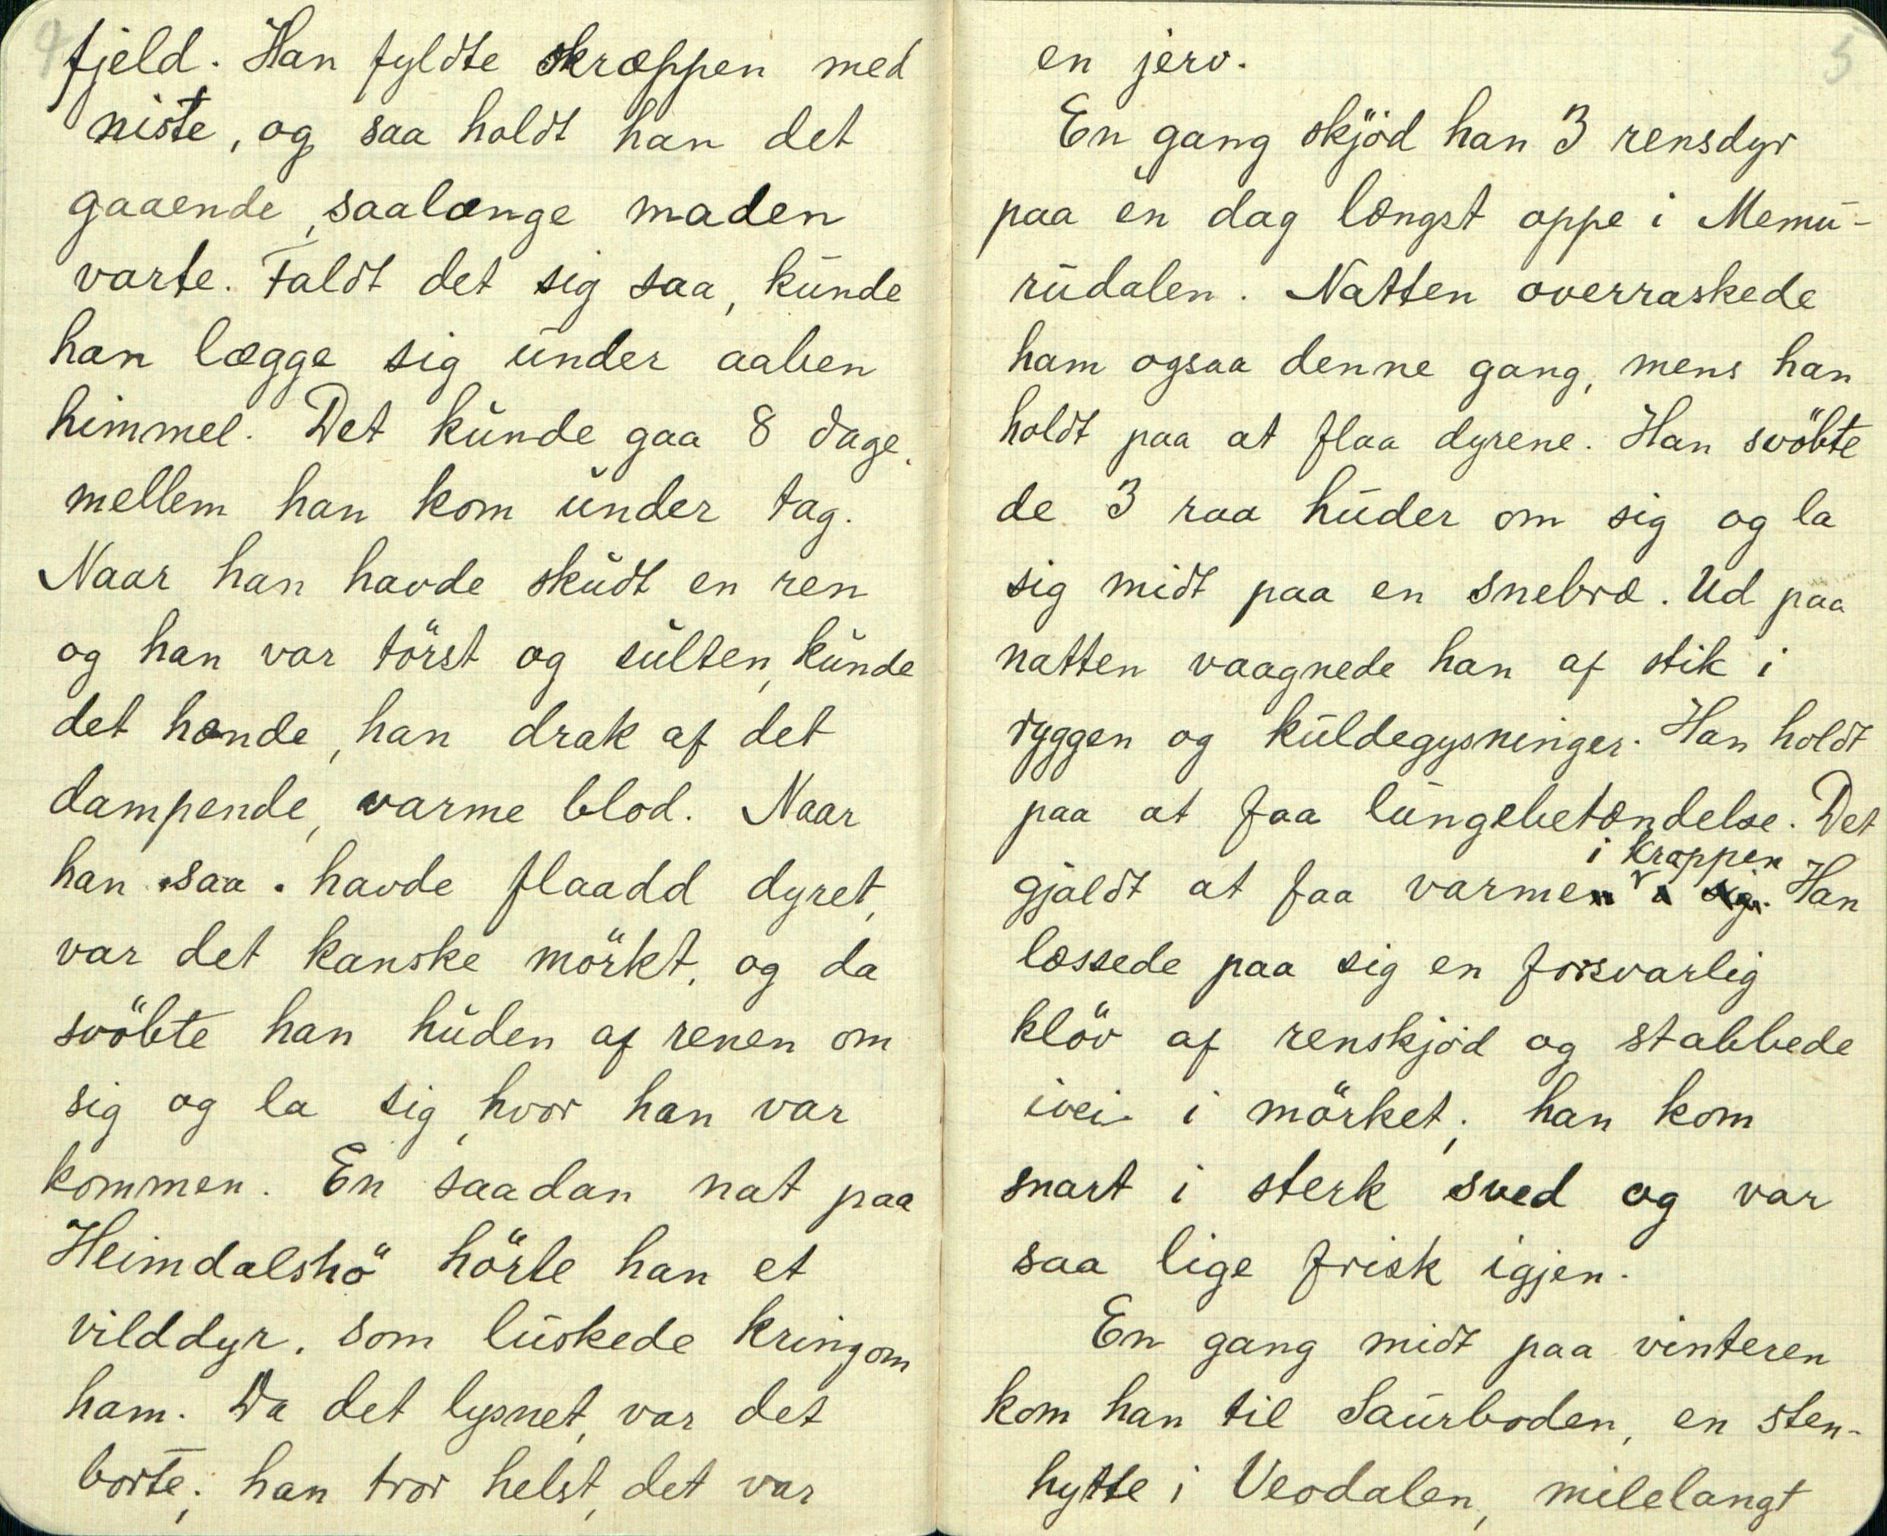 4
fjeld. Han fyldte skræppen med
niste, og saa holdt han det
gaaende, saalænge maden
varte. Faldt det sig saa, kunde
han lægge sig under aaben
himmel. Det kunde gaa 8 dage,
mellem han kom under tag.
Naar han havde skudt en ren
og han var törst og sulten, kunde
det hænde, han drak af det
dampende, varme blod. Naar
han saa havde flaadd dyret,
var det kanske mörkt, og da
svöbte han huden af renen om
sig og la sig, hvor han var
kommen. En saadan nat paa
Heimdalshö hörte han et
vilddyr, som luskede kringom
ham. Da det lysnet, var det
borte; han tror helst, det var
5
en jerv.
En gang skjöd han 3 rensdyr
paa én dag længst oppe i Memu-
rudalen. Natten overraskede
ham ogsaa denne gang, mens han
holdt paa at flaa dyrene. Han svöbte
de 3 raa huder om sig og la
sig midt paa en snebræ. Ud paa
natten vaagnede han af stik i
ryggen og kuldegysninger. Han holdt
paa at faa lungebetændelse. Det
gjaldt at faa varmen i sig. Han
i kroppen
læssede paa sig en forsvarlig
klöv af renskjöd og stabbede
ivei i mörket; han kom
snart i sterk sved og var
saa lige frisk igjen.
En gang midt paa vinteren
kom han til Saurboden, en sten-
hytte i Veodalen, milelangt